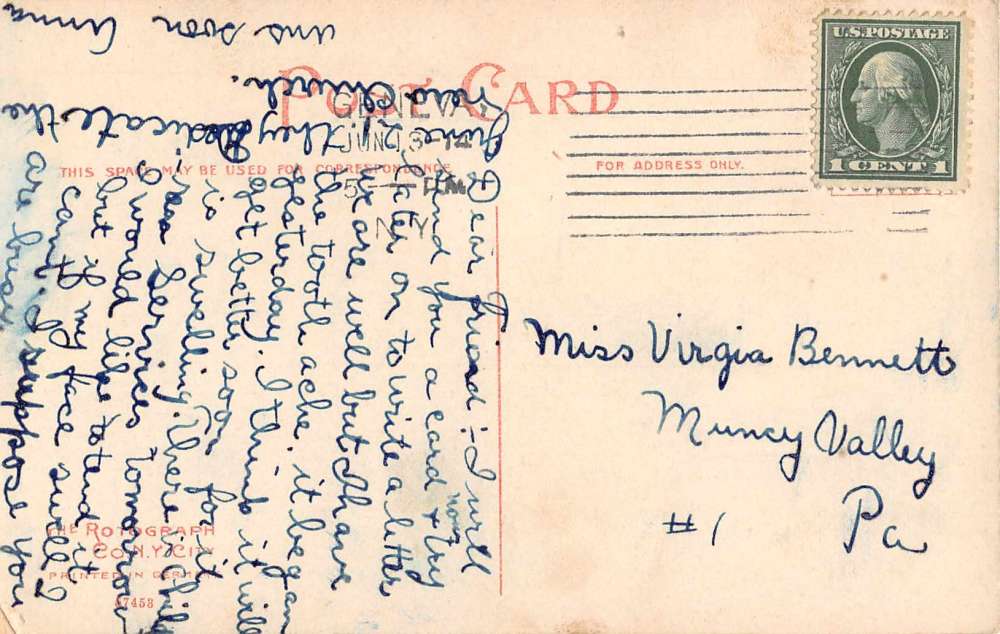 POST CARD
GENEVA
JUN 13
5 - PM
N.Y.
THIS SPACE MAY BE USED FOR CORRESPONDENCE
FOR ADDRESS ONLY.
U.S. POSTAGE
1 CENT 1
Dear friend :- I will
send you a card now & try
later on to write a letter
we are well but I have
the tooth ache. it began
yesterday. I think it will
get better soon for it
is swelling. there is Chil
services tomorrow
I would like to tend it
but if my face swell?
cant. I suppose you
are busy
June they Dedicate the
Church.
ans soon Anna
Miss Virgia Bennett
Muncy Valley
#1 Pa
THE ROTOGRAPH
CO. N.Y. CITY
PRINTED IN GERMANY